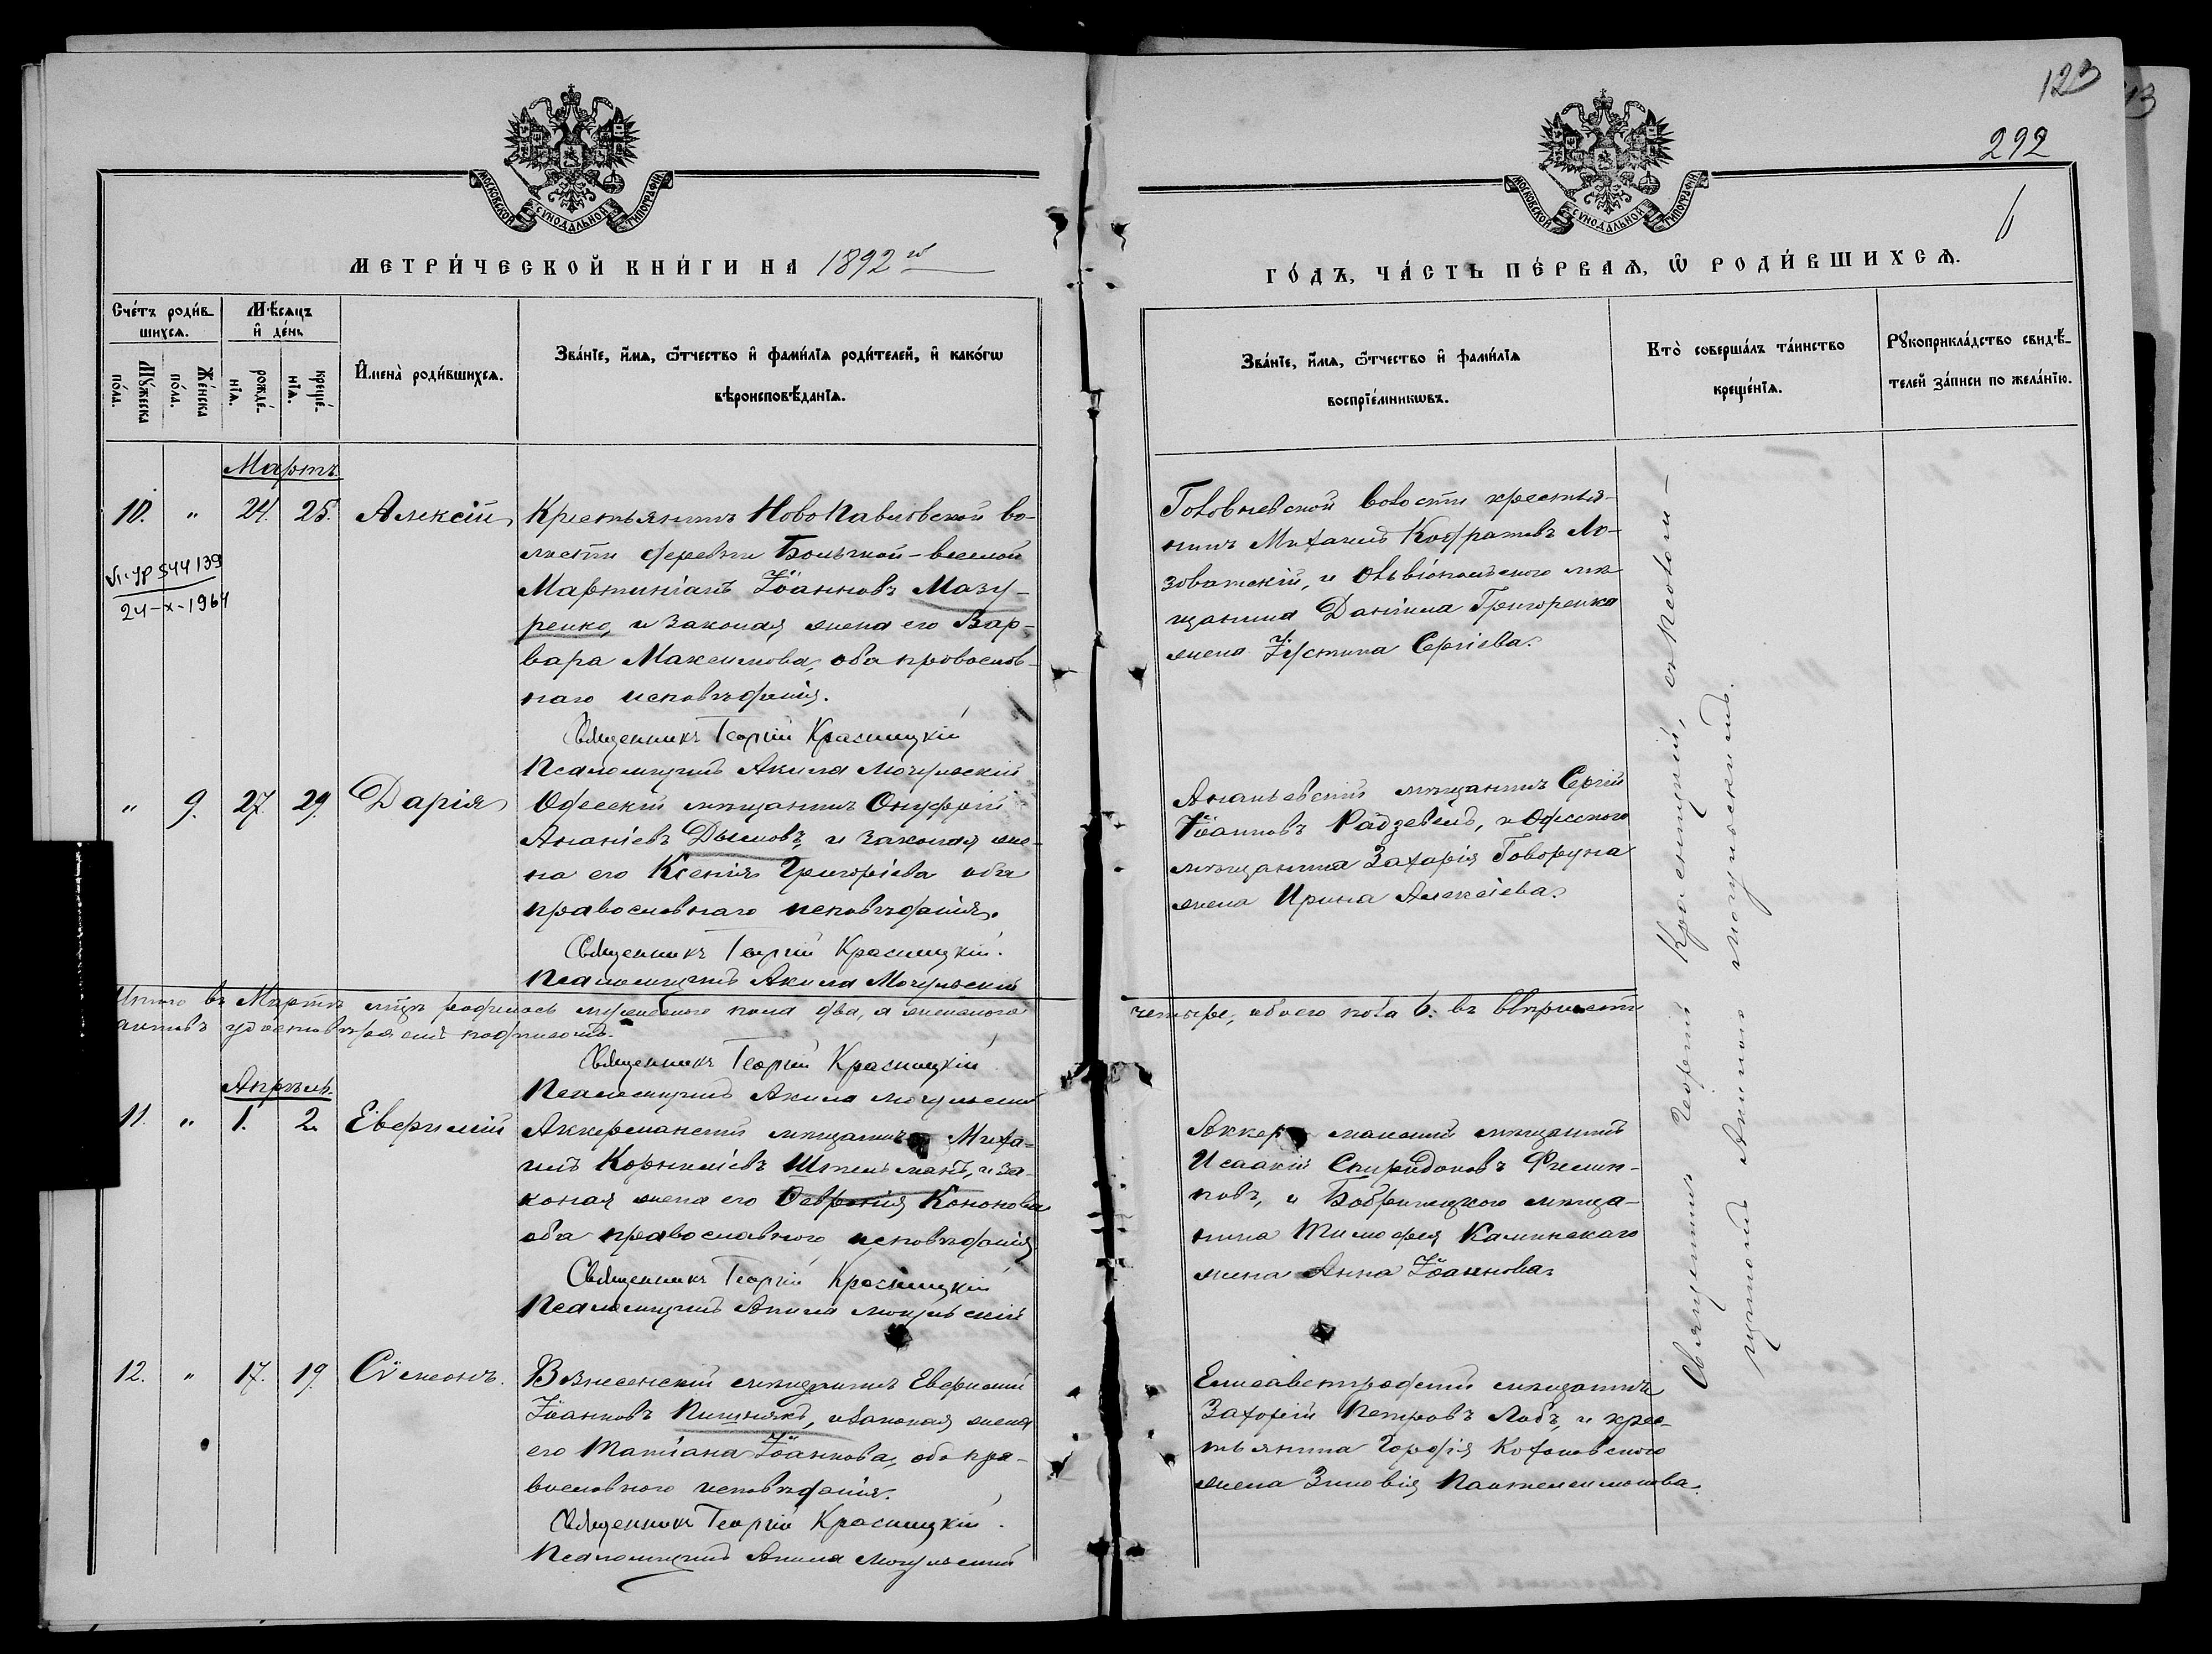 123
292
МОСКОВСКОЙ СѴНОДАЛЬНОЙ ТИПОГРАФІИ
МОСКОВСКОЙ СѴНОДАЛЬНОЙ ТИПОГРАФІИ
МЕТРИ́ЧЕСКОЙ КНИ́ГИ НА 1892 й
ГО́ДЪ, ЧА́СТЬ ПЕ́РВАѦ, Ѡ РОДИ́ВШИХСѦ.
Сче́тъ роди́вшихсѧ.
Мꙋ́жеска по́ла.
Же́нска по́ла.
Мѣ́сѧцъ и҆ де́нь
рожде́нїѧ.
креще́нїѧ.
И҆мена̀ роди́вшихсѧ.
Зва́нїе, и҆́мѧ, ѻ҆́тчество и҆ фами́лїѧ роди́телей, и҆ како́гѡ
вѣроисповѣ́данїѧ.
Зва́нїе, и҆́мѧ, ѻ҆́тчество и҆ фами́лїѧ
воспрїе́мникѡвъ.
Кто̀ соверша́лъ та́инство
креще́нїѧ.
Рꙋкоприкла́дство свидѣ́-
телей за́писи по жела́нїю.
Мартъ
10. " 24. 25. Алексій
Крестьянинъ НовоПавловской во-
лости деревни
Мартиніанъ Іоанновъ Мазу-
ренко, и законая жена его Вар-
вара Максимова, оба православ-
наго исповѣданія.
Священникъ Георгій Красницкій
Псаломщикъ Акила Мочульскій
544139
24-X-1964
волости крестья-
нинъ Михаилъ Кодратовъ Ло-
зоватскій, и мѣ-
щанина Даніила Григоренка
жена Іустина Сергіева.
" 9. 27. 29. Дарія
Одесскій мѣщанинъ Онуфрій
Ананіевъ Дымовъ, и законая же-
на его Ксенія Григоріева оба
православнаго исповѣданія.
Священникъ Георгій Красницкій.
Псаломщикъ Акила Мочульскій
Ананьевскій мѣщанинъ Сергій
Іоанновъ Радзевилъ, и Одесского
мѣщанина Захарія Говоруна
жена Ирина Алексіева.
Итого въ Мартѣ мцѣ родилось мужеского пола два, а женского
четыре, обоего пола 6. въ вѣрности
актовъ удостовѣряемъ подписомъ.
Священникъ Георгій Красницкій
Псаломщикъ Акила Мочульскій
Апрѣль.
11. " 1. 2. Евфимій
Аккерманскій мѣщанинъ Миха-
илъ Корниліевъ Штельмахъ, и за-
коная жена его Февронія Кононова
оба православного исповѣданія
Священникъ Георгій Красницкій
Псаломщикъ Акила Мочульскій
Аккерманскій мѣщанинъ
Исаакій Спиридоновъ Филип-
повъ, и Бобринецкого мѣща-
нина Тимофея Калинскаго
жена Анна Іоаннова.
12. " 17. 19. Сѵмеонъ.
Вознесенскій мѣщанинъ Евфимій
Іоанновъ Пишнякъ, и законая жена
его Татіана Іоаннова, оба пра-
вославного исповѣданія.
Священникъ Георгій Красницкій.
Псаломщикъ Акила Мочульскій
Елисаветградскій мѣщанинъ
Захарій Петровъ Лобъ, и крес-
тьянина Гордія
жена Зиновія Пантелеимонова.
Священникъ Георгій Красницкій, съ псалом-
щикомъ Акилою Мочульскимъ.